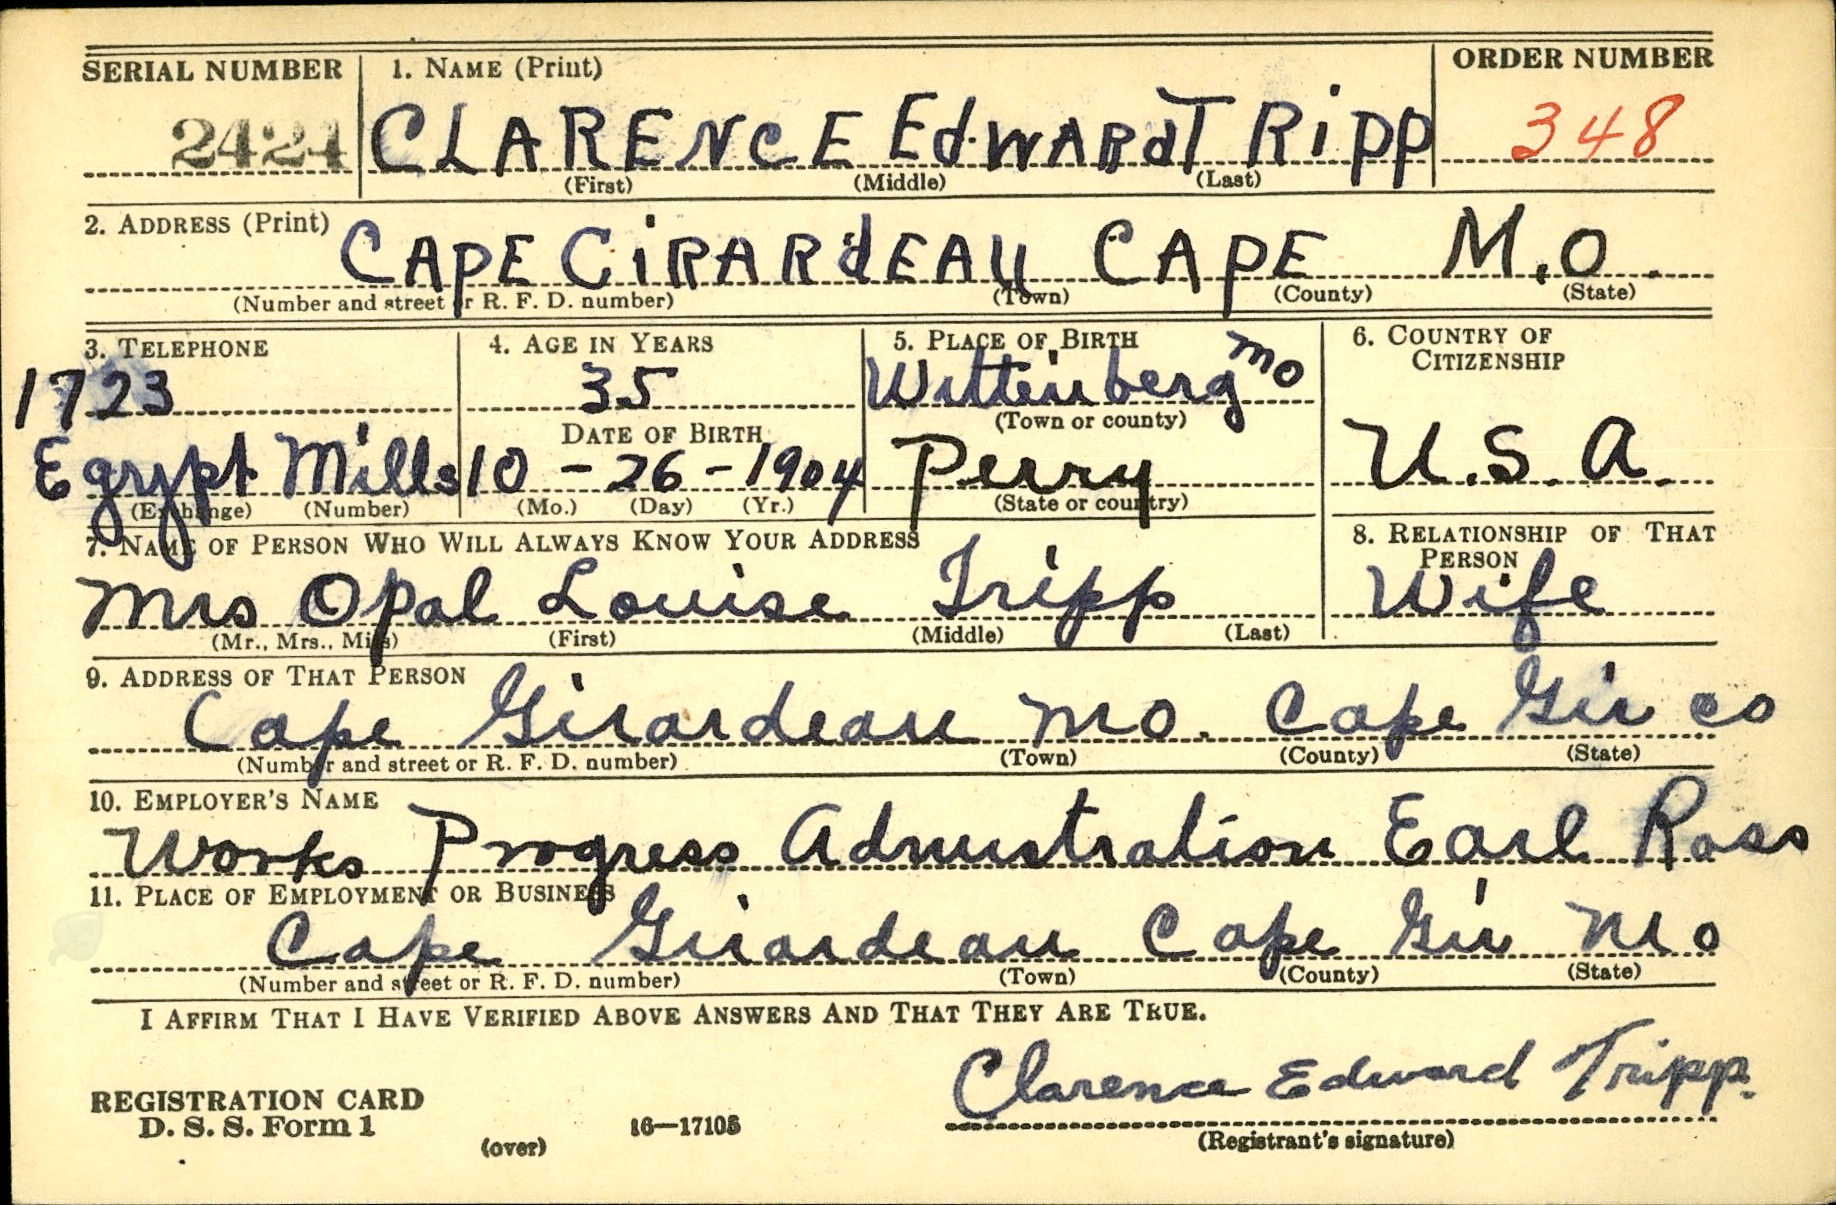 SERIAL NUMBER 1. NAME (Print) ORDER NUMBER
2424 CLARENCE EdWARd TRiPP 348
(First) (Middle) (Last)
2. ADDRESS (Print)
CAPE GiRARdEAU CAPE M.O.
(Number and street or R. F. D. number) (Town) (County) (State)
3. TELEPHONE 4. AGE IN YEARS 5. PLACE OF BIRTH 6. COUNTRY OF CITIZENSHIP
1723 35 Wittenberg Mo
(Town or county)
DATE OF BIRTH
Egrypt Mills 10 - 26 - 1904 Perry U.S.A.
(Exchange) (Number) (Mo.) (Day) (Yr.) (State or country)
7. NAME OF PERSON WHO WILL ALWAYS KNOW YOUR ADDRESS 8. RELATIONSHIP OF THAT PERSON
Mrs Opal Louise Tripp Wife
(Mr., Mrs., Miss) (First) (Middle) (Last)
9. ADDRESS OF THAT PERSON
Cape Girardeau Mo. Cape Gir co
(Number and street or R. F. D. number) (Town) (County) (State)
10. EMPLOYER'S NAME
Works Progress Admistration Earl Ross
11. PLACE OF EMPLOYMENT OR BUSINESS
Cape Girardeau Cape Gir Mo
(Number and street or R. F. D. number) (Town) (County) (State)
I AFFIRM THAT I HAVE VERIFIED ABOVE ANSWERS AND THAT THEY ARE TRUE.
Clarence Edward Tripp.
REGISTRATION CARD
D. S. S. Form 1 16—17105
(over) (Registrant's signature)